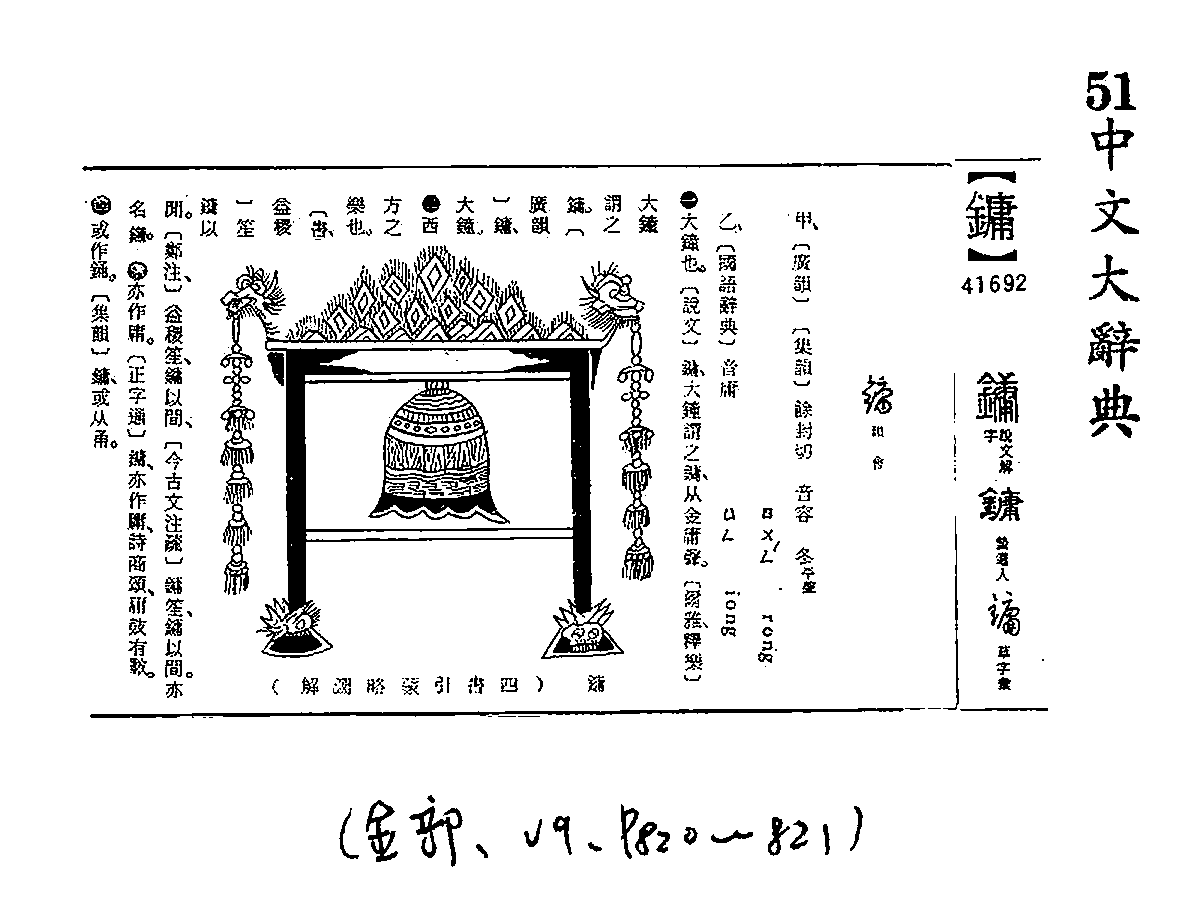 51中文大辭典
【鏞】
41692
鏞 說文解字
鏞 曾選人
鏞 草字彙
鏞 韻會
甲、〔廣韻〕〔集韻〕餘封切 音容 冬平聲
ㄖㄨㄥˊ rong
乙、〔國語辭典〕音庸 ㄩㄥ iong
㊀大鐘也。〔說文〕鏞、大鐘謂之鏞、从金庸聲。〔爾雅、釋樂〕
大鐘
謂之
鏞。〔
廣韻
〕鏞、
大鐘。
㊁西
方之
樂也。
〔書、
益稷
〕笙
鏞以
間。〔鄭注〕益稷笙、鏞以間、〔今古文注疏〕鏞笙、鏞以間。亦
名鏞。㊂亦作庸。〔正字通〕鏞、亦作庸、詩商頌、庸鼓有斁。
㊃或作銿。〔集韻〕鏞、或从甬。
鏞 (四書引蒙略圖解)
(金部、V9、P820~821)